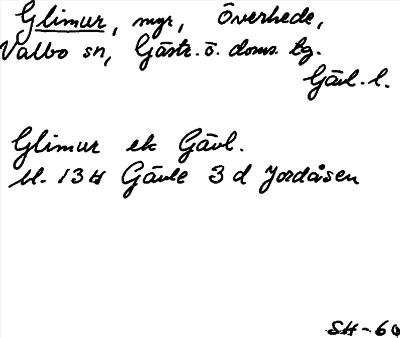 Glimur, myr, Överhede,
Valbo sn, Gästr. ö. doms. tg.
Gävl. l.
Glimur ek Gävl.
bl. 13H Gävle 3 d Jordåsen
SH-60